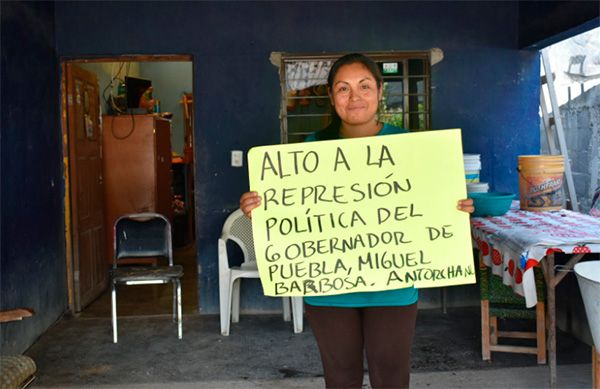 ALTO A LA
REPRESIÓN
POLÍTICA DEL
GOBERNADOR DE
PUEBLA, MIGUEL
BARBOSA. ANTORCHA N.